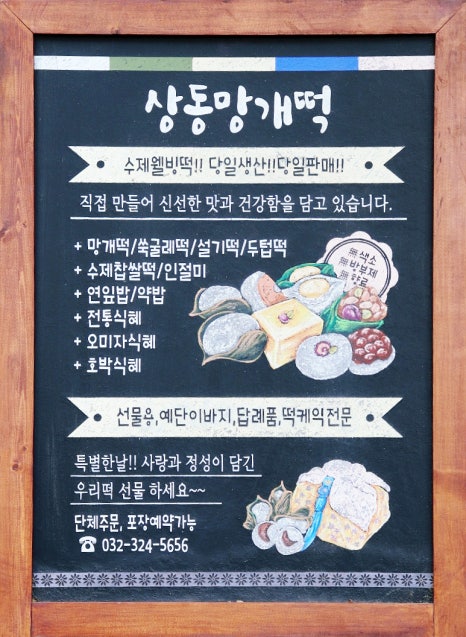 상동망개떡
수제웰빙떡!! 당일생산!!당일판매!!
직접 만들어 신선한 맛과 건강함을 담고 있습니다.
+ 망개떡/쑥굴레떡/설기떡/두텁떡
+ 수제찹쌀떡/인절미
+ 연잎밥/약밥
+ 전통식혜
+ 오미자식혜
+ 호박식혜
無색소
無방부제
無향료
선물용,예단이바지,답례품,떡케익전문
특별한날!! 사랑과 정성이 담긴
우리떡 선물 하세요~~
단체주문, 포장예약가능
☎ 032-324-5656